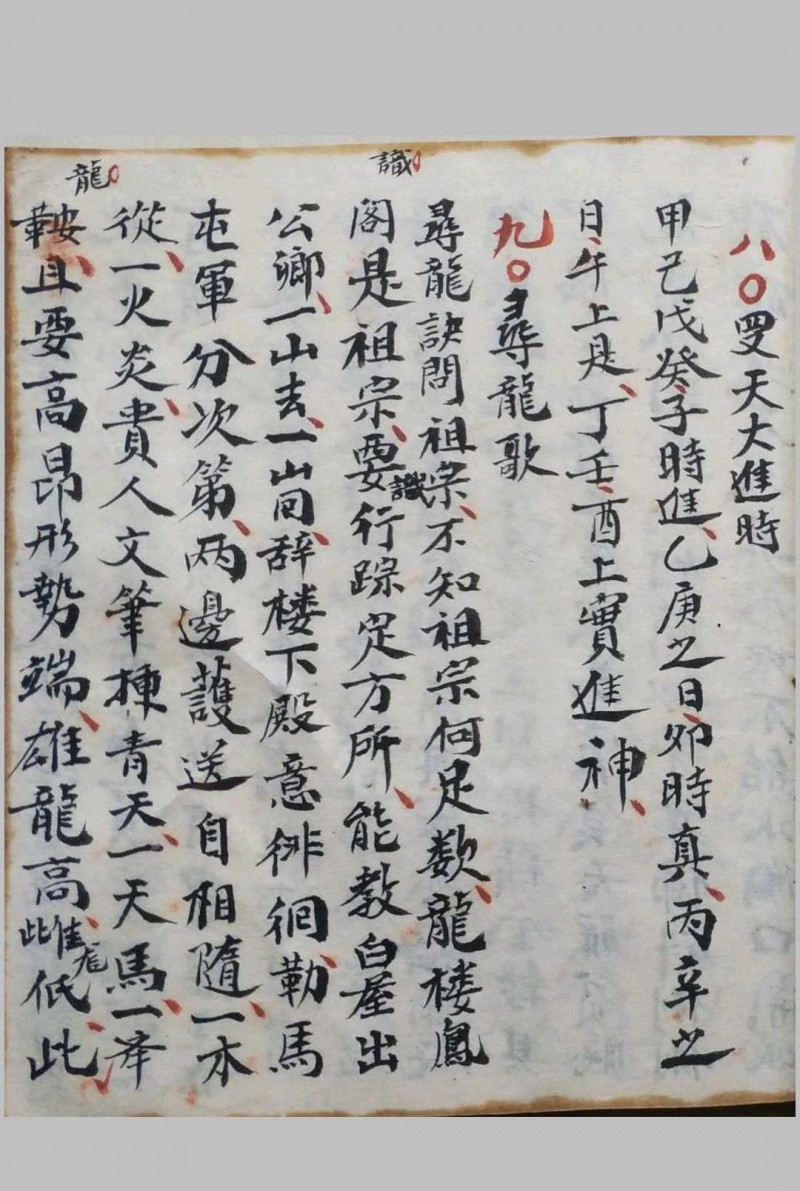 八〇四天大進時
甲己戊癸子時進乙庚之日卯時真丙辛之
日午上是丁壬酉上實進神
九〇尋龍歌
尋龍訣問祖宗不知祖宗何足数龍楼鳳
識
閣是祖宗要識行踪定方所能教白屋出
公卿一山去一山回辞楼下殿意徘徊勒馬
屯軍分次第两邊護送自相隨一木
從一火炎貴人文筆揷青天一天馬一
龍
鞍且要高昂形勢端雄龍高雌龙低此